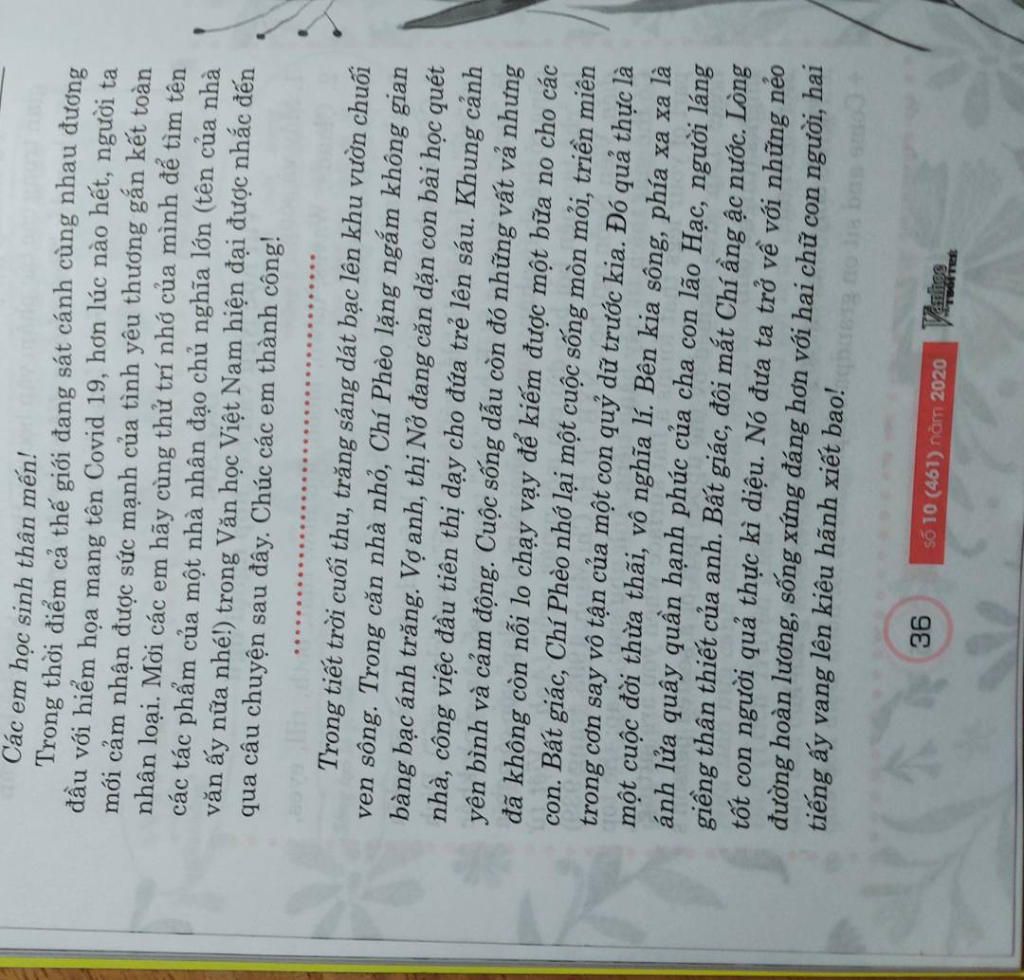 Các em học sinh thân mến!
Trong thời điểm cả thế giới đang sát cánh cùng nhau đương
đầu với hiểm họa mang tên Covid 19, hơn lúc nào hết, người ta
mới cảm nhận được sức mạnh của tình yêu thương gắn kết toàn
nhân loại. Mời các em hãy cùng thử trí nhớ của mình để tìm tên
các tác phẩm của một nhà nhân đạo chủ nghĩa lớn (tên của nhà
văn ấy nữa nhé!) trong Văn học Việt Nam hiện đại được nhắc đến
qua câu chuyện sau đây. Chúc các em thành công!
Trong tiết trời cuối thu, trăng sáng dát bạc lên khu vườn chuối
ven sông. Trong căn nhà nhỏ, Chí Phèo lặng ngắm không gian
bàng bạc ánh trăng. Vợ anh, thị Nở đang căn dặn con bài học quét
nhà, công việc đầu tiên thị dạy cho đứa trẻ lên sáu. Khung cảnh
yên bình và cảm động. Cuộc sống dẫu còn đó những vất vả nhưng
đã không còn nỗi lo chạy vạy để kiếm được một bữa no cho các
con. Bất giác, Chí Phèo nhớ lại một cuộc sống mòn mỏi, triền miên
trong cơn say vô tận của một con quỷ dữ trước kia. Đó quả thực là
một cuộc đời thừa thãi, vô nghĩa lí. Bên kia sông, phía xa xa là
ánh lửa quây quần hạnh phúc của cha con lão Hạc, người láng
giềng thân thiết của anh. Bất giác, đôi mắt Chí ầng ậc nước. Lòng
tốt con người quả thực kì diệu. Nó đưa ta trở về với những nẻo
đường hoàn lương, sống xứng đáng hơn với hai chữ con người, hai
tiếng ấy vang lên kiêu hãnh xiết bao!
36 số 10 (461) năm 2020